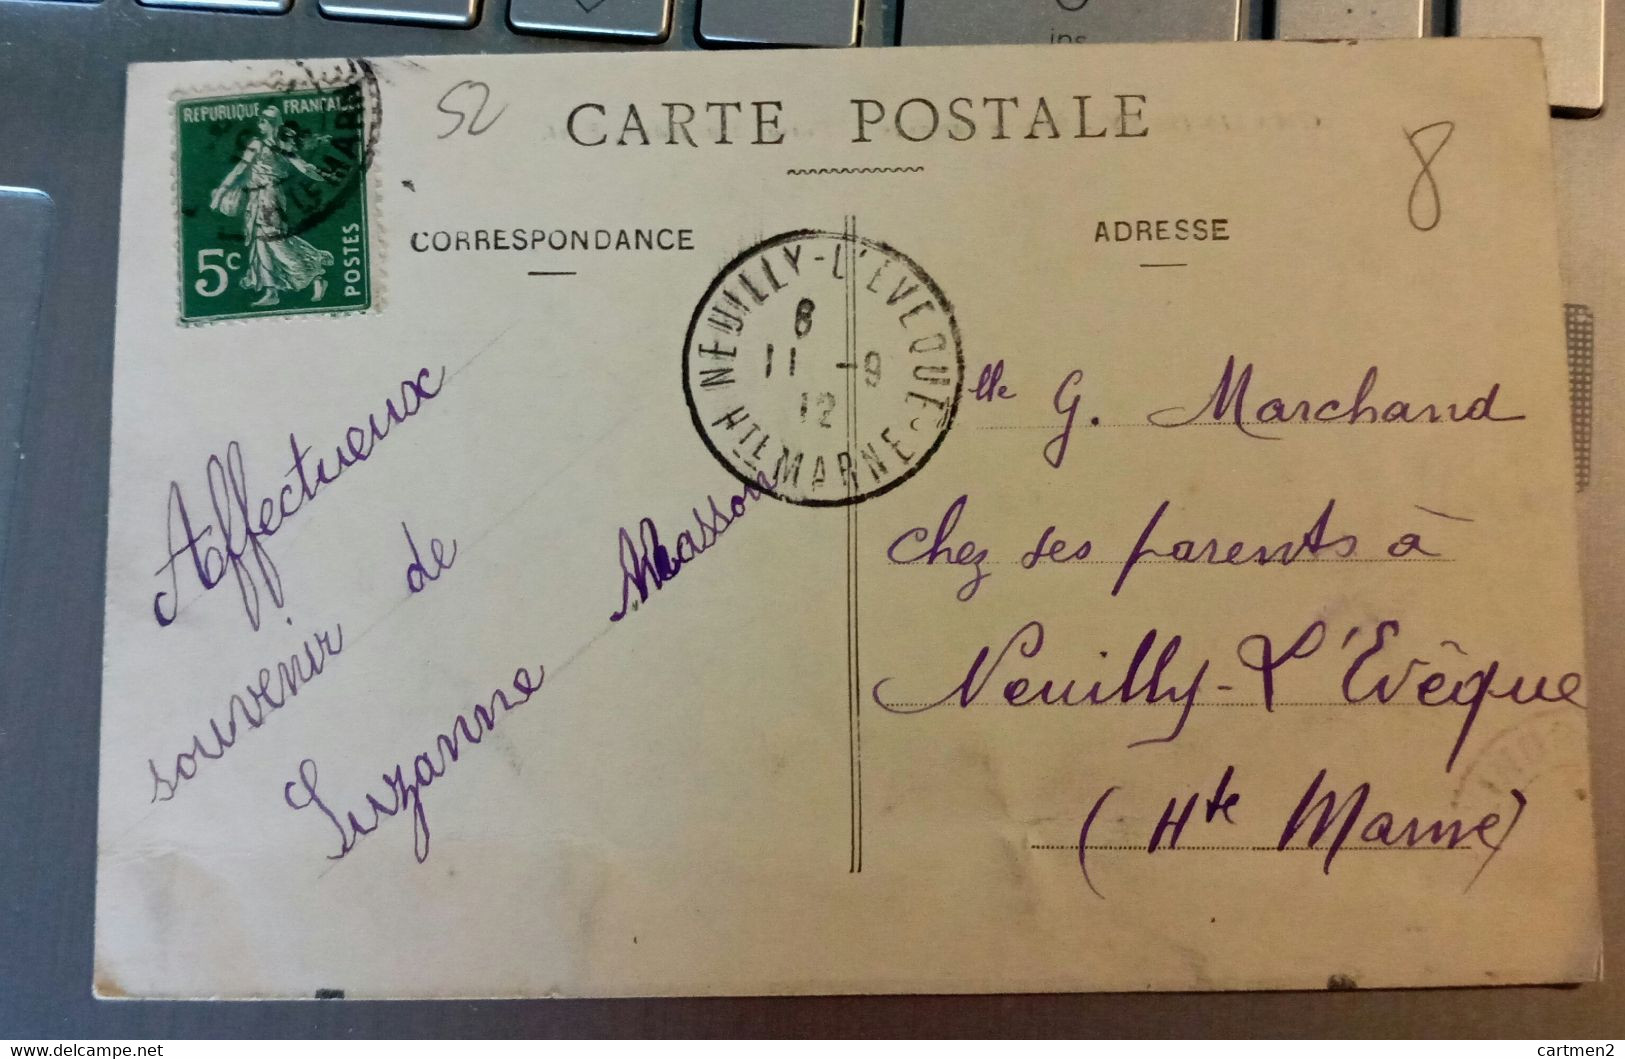 ins
52
CARTE POSTALE
8
REPUBLIQUE FRANCAISE
5c
POSTES
CORRESPONDANCE
ADRESSE
NEUILLY-L'EVEQUE
8
11 -9
12
HTE MARNE
Affectueux
souvenir de
Suzanne Masson
lle G. Marchand
chez ses parents à
Neuilly-L'Evêque
(Hte Marne)
cartmen2
www.delcampe.net